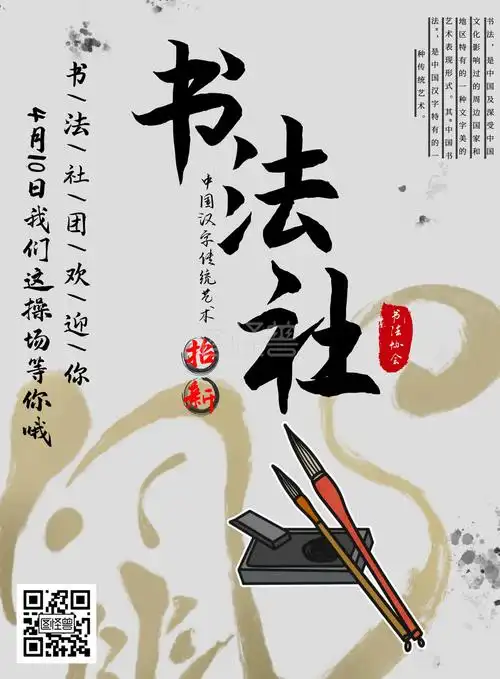 书法，是中国及深受中国
文化影响过的周边国家和
地区特有的一种文字美的
艺术表现形式。其"中国书
法"，是中国汉字特有的一
种传统艺术。
书法社
中国汉字传统艺术
招新
书法协会
书/法/社/团/欢/迎/你
4月10日我们这操场等你哦
图怪兽